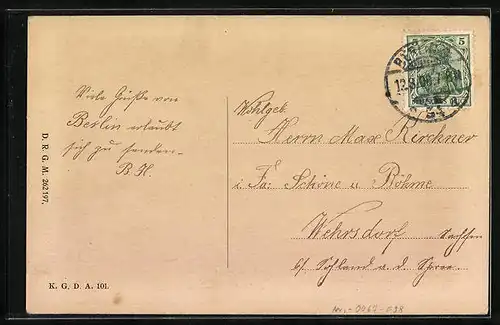 Viele Grüße von
Berlin erlaubt
sich zu senden
B. H.
D. R. G. M. 262197.
K. G. D. A. 101.
5 5
Wohlgeb.
Herrn Max Kirchner
i. Fa: Schöne u Böhme
Wehrsdorf Sachsen
b/ Sohland a. d. Spree